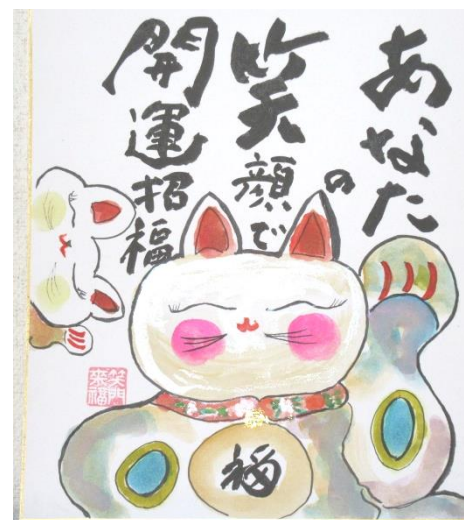 あなたの
笑顔で
開運招福
笑門
来福
福